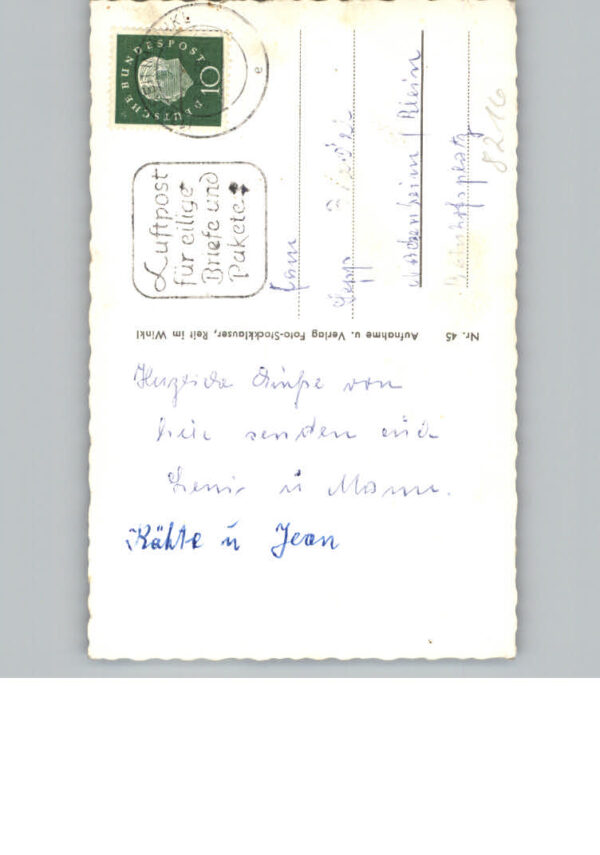 DEUTSCHE BUNDESPOST
10
e
Luftpost
für eilige
Briefe und
Pakete
Fam
Sepp
Nackenheim / Rhein
Bahnhofsplatz
8216
Nr. 45 Aufnahme u. Verlag Foto-Stockklauser, Reit im Winkl
Herzliche Grüße von
hier senden euch
u Mann.
Kähte u Jean